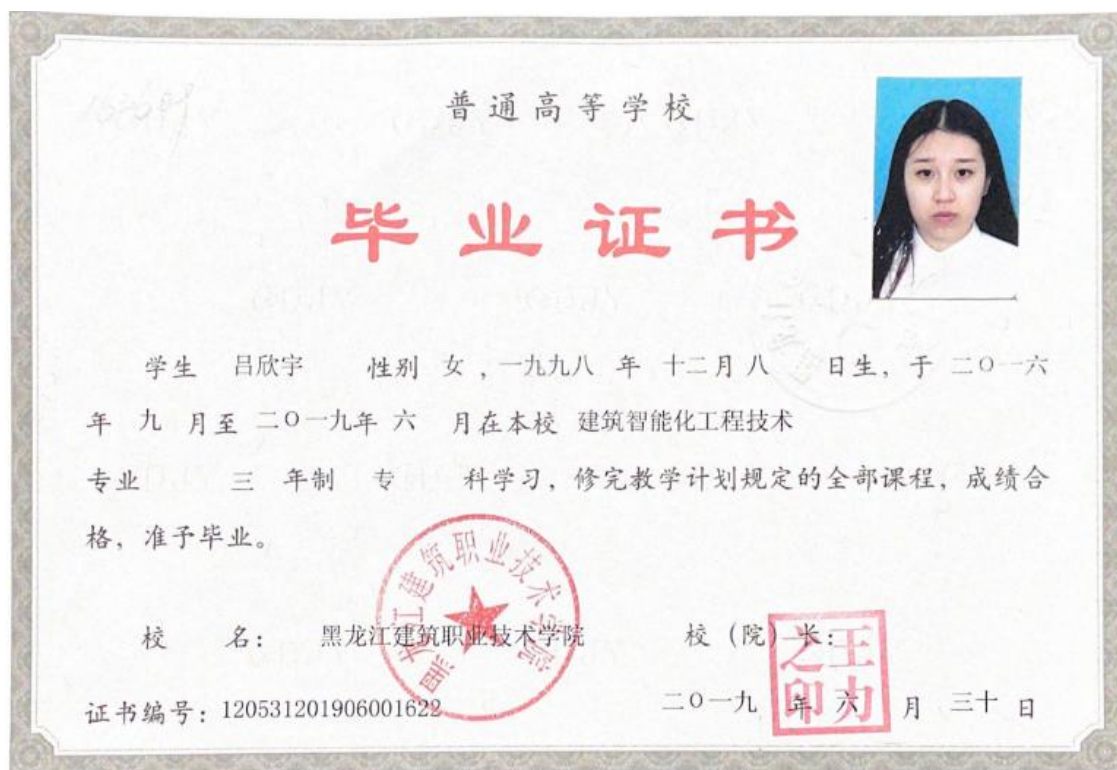 普通高等学校
毕业证书
学生 吕欣宇 性别 女，一九九八 年 十二月 八 日生，于 二〇一六
年 九 月至 二〇一九年 六 月在本校 建筑智能化工程技术
专业 三 年制 专 科学习，修完教学计划规定的全部课程，成绩合
格，准予毕业。
黑龙江建筑职业技术学院
校 名：黑龙江建筑职业技术学院 校（院）长：
王力之印
证书编号：120531201906001622 二〇一九 年 六 月 三十 日